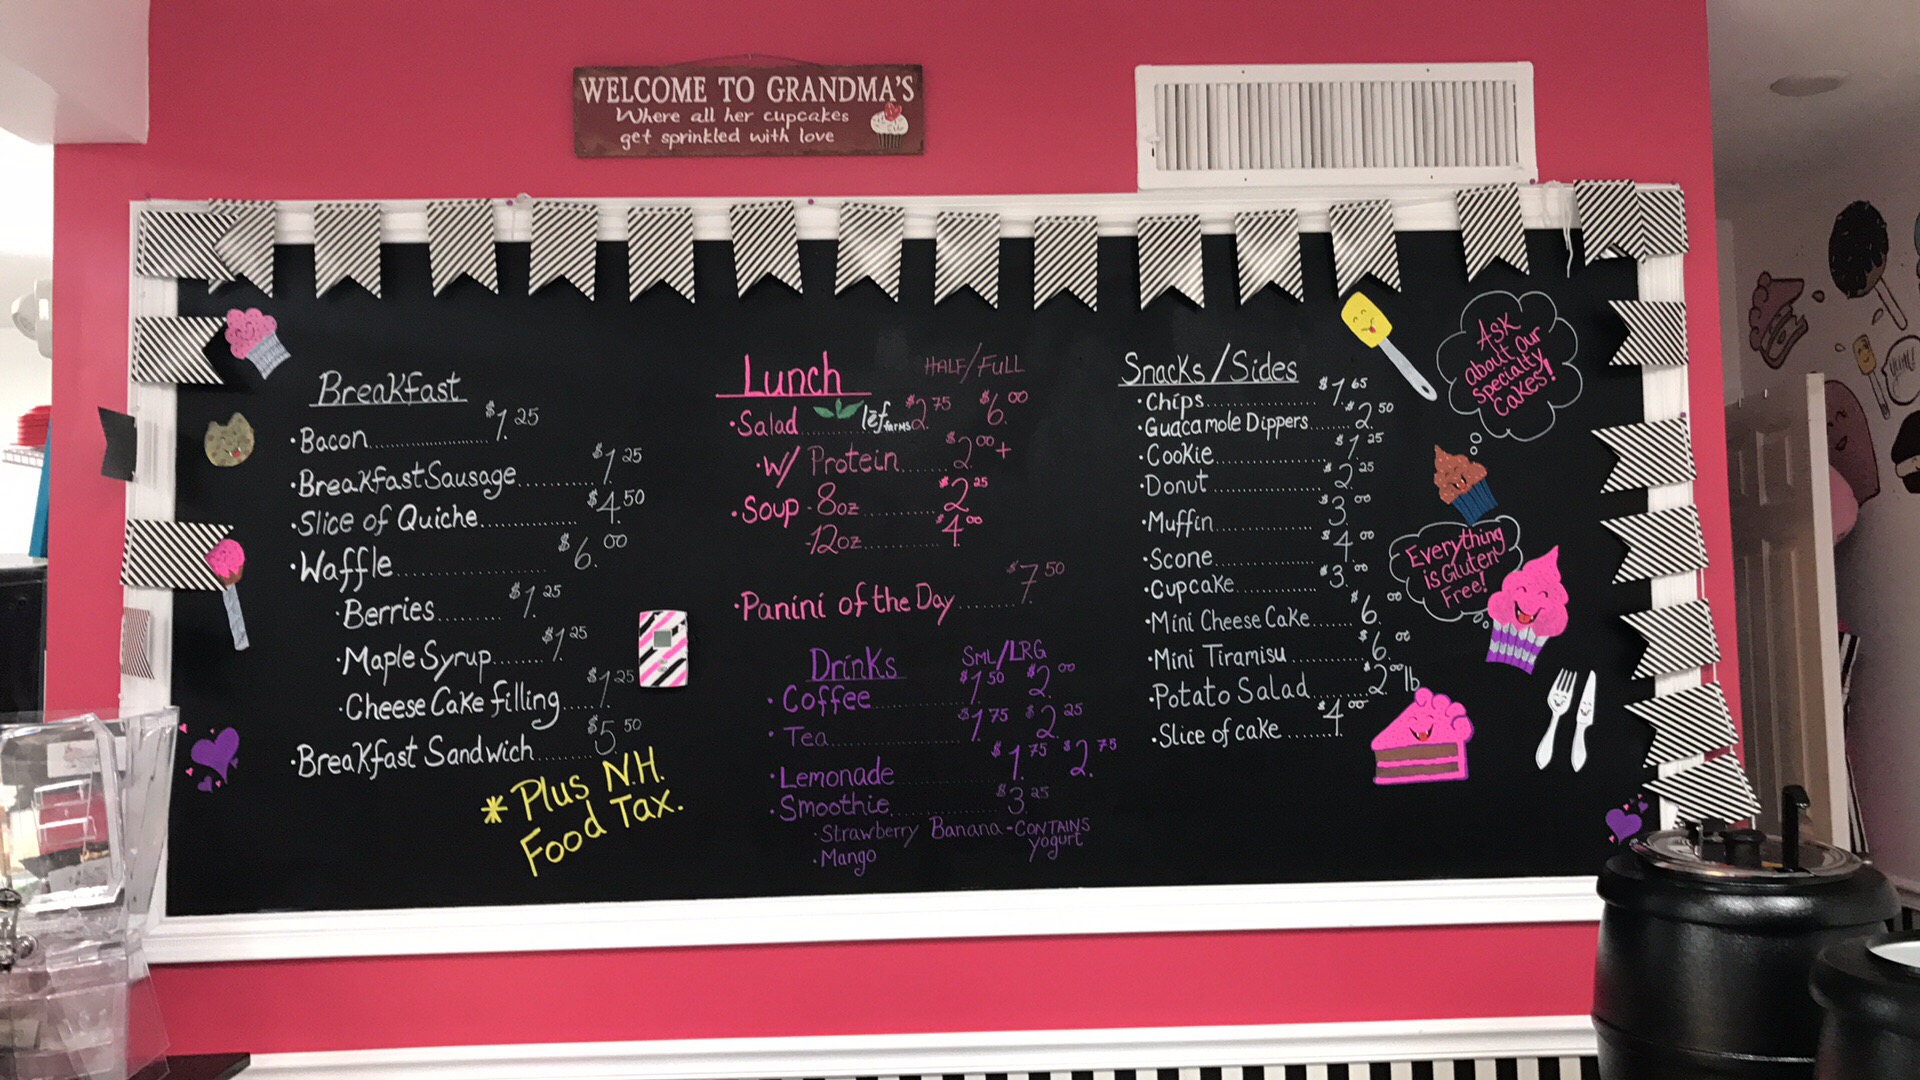 WELCOME TO GRANDMA'S
Where all her cupcakes
get sprinkled with love
Breakfast
·Bacon.................... $1.25
·Breakfast Sausage.......... $1.25
·Slice of Quiche............. $4.50
·Waffle.................... $6.00
·Berries......... $1.25
·Maple Syrup....... $1.25
·Cheese Cake filling..... $1.25
·Breakfast Sandwich......... $5.50
*Plus N.H.
Food Tax.
Lunch HALF/FULL
·Salad ........ lēf FARMS $2.75 $6.00
·W/ Protein...... $2.00+
·Soup - 8oz.......... $2.25
-12oz.......... $4.00
·Panini of the Day....... $7.50
Drinks SML/LRG
·Coffee............ $1.50 $2.00
·Tea.................. $1.75 $2.25
·Lemonade............ $1.75 $2.75
·Smoothie............ $3.25
·Strawberry Banana - CONTAINS
yogurt
·Mango
Snacks/Sides
·Chips................ $1.65
·Guacamole Dippers...... $2.50
·Cookie............... $1.25
·Donut............... $2.25
·Muffin............... $3.00
·Scone............... $4.00
·Cupcake............. $3.00
·Mini Cheese Cake...... $6.00
·Mini Tiramisu.......... $6.00
·Potato Salad........ $2.00 lb
·Slice of cake ....... $4.00
Ask
about our
specialty
Cakes!
Everything
is Gluten
Free!
yum!